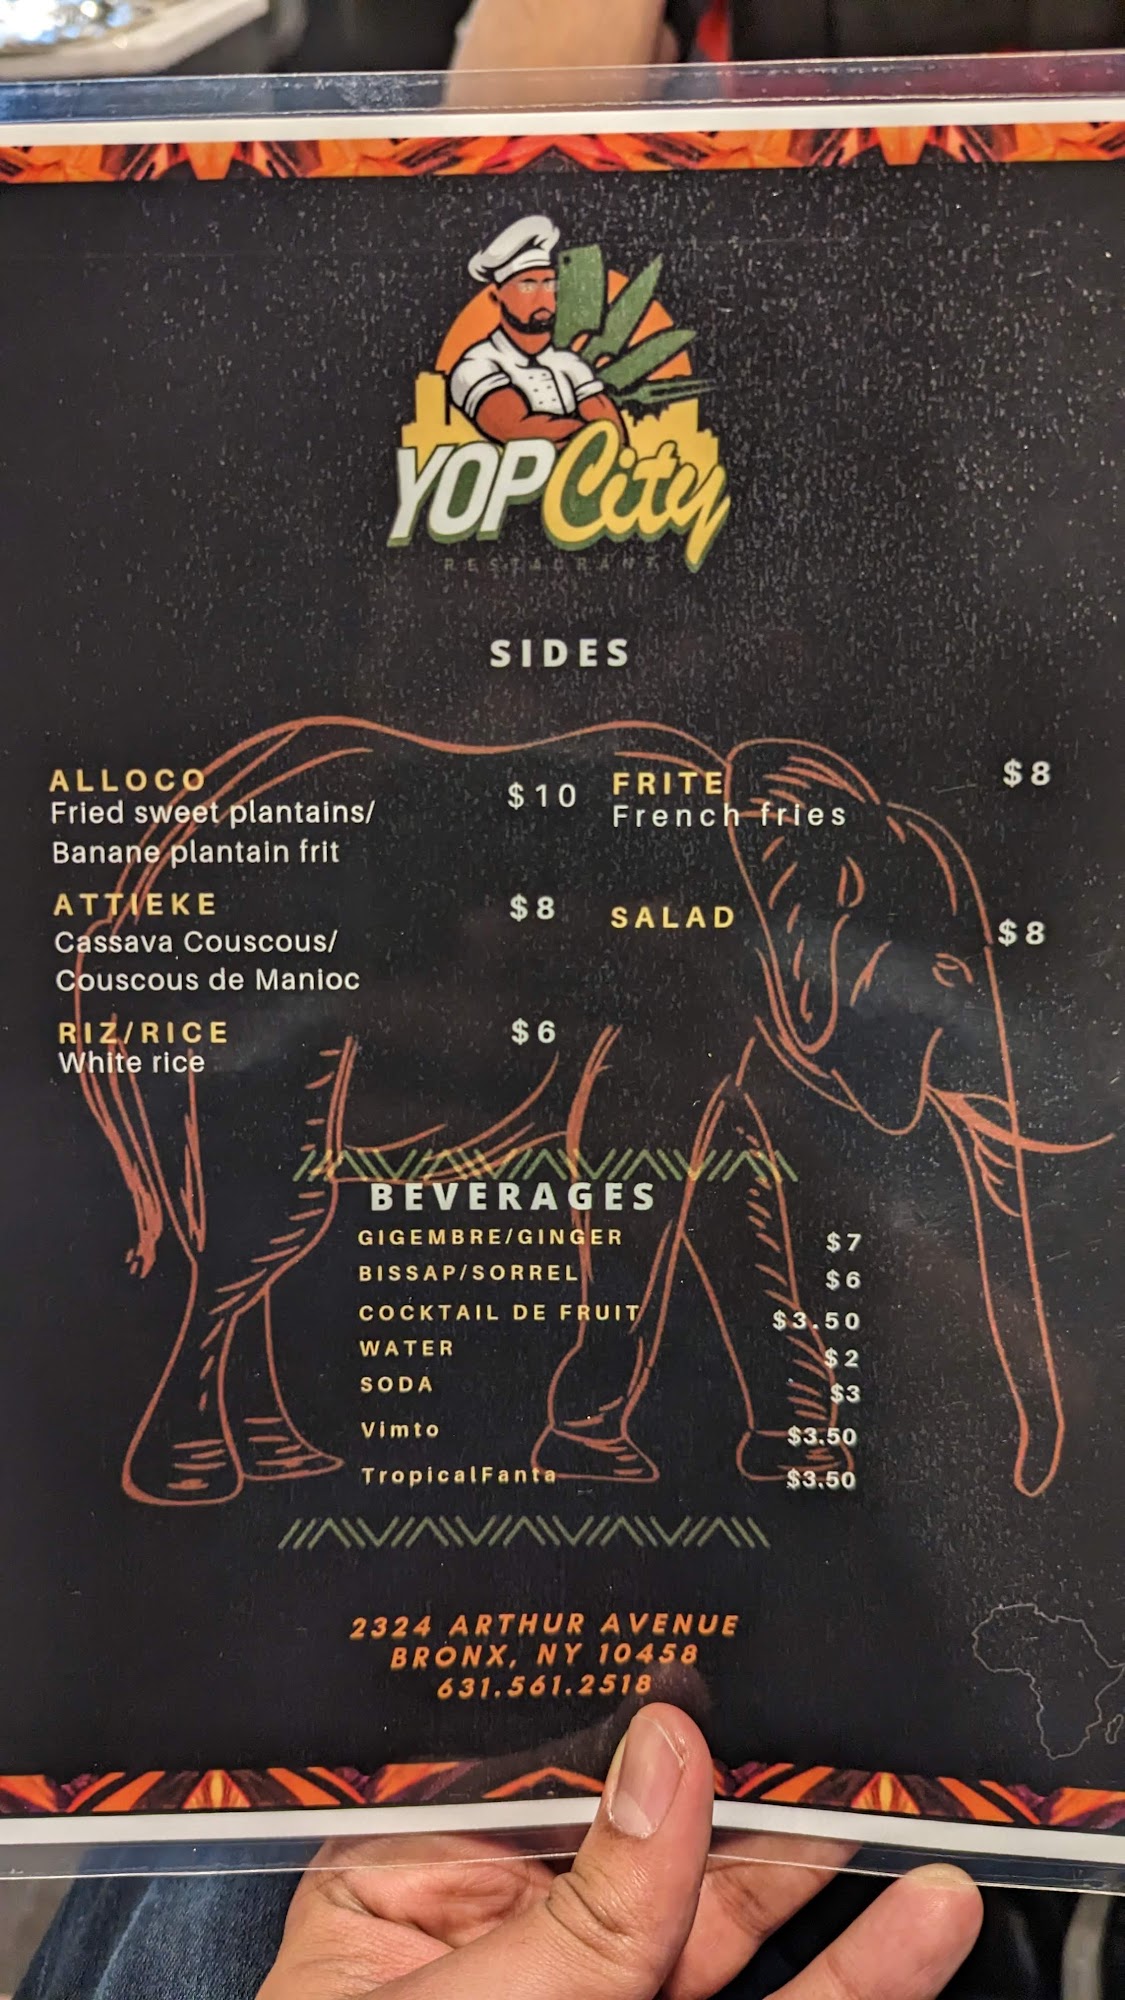 YOP City
RESTAURANT
SIDES
ALLOCO $10
Fried sweet plantains/
Banane plantain frit
ATTIEKE $8
Cassava Couscous/
Couscous de Manioc
RIZ/RICE $6
White rice
FRITE $8
French fries
SALAD $8
BEVERAGES
GIGEMBRE/GINGER $7
BISSAP/SORREL $6
COCKTAIL DE FRUIT $3.50
WATER $2
SODA $3
Vimto $3.50
TropicalFanta $3.50
2324 ARTHUR AVENUE
BRONX, NY 10458
631.561.2518